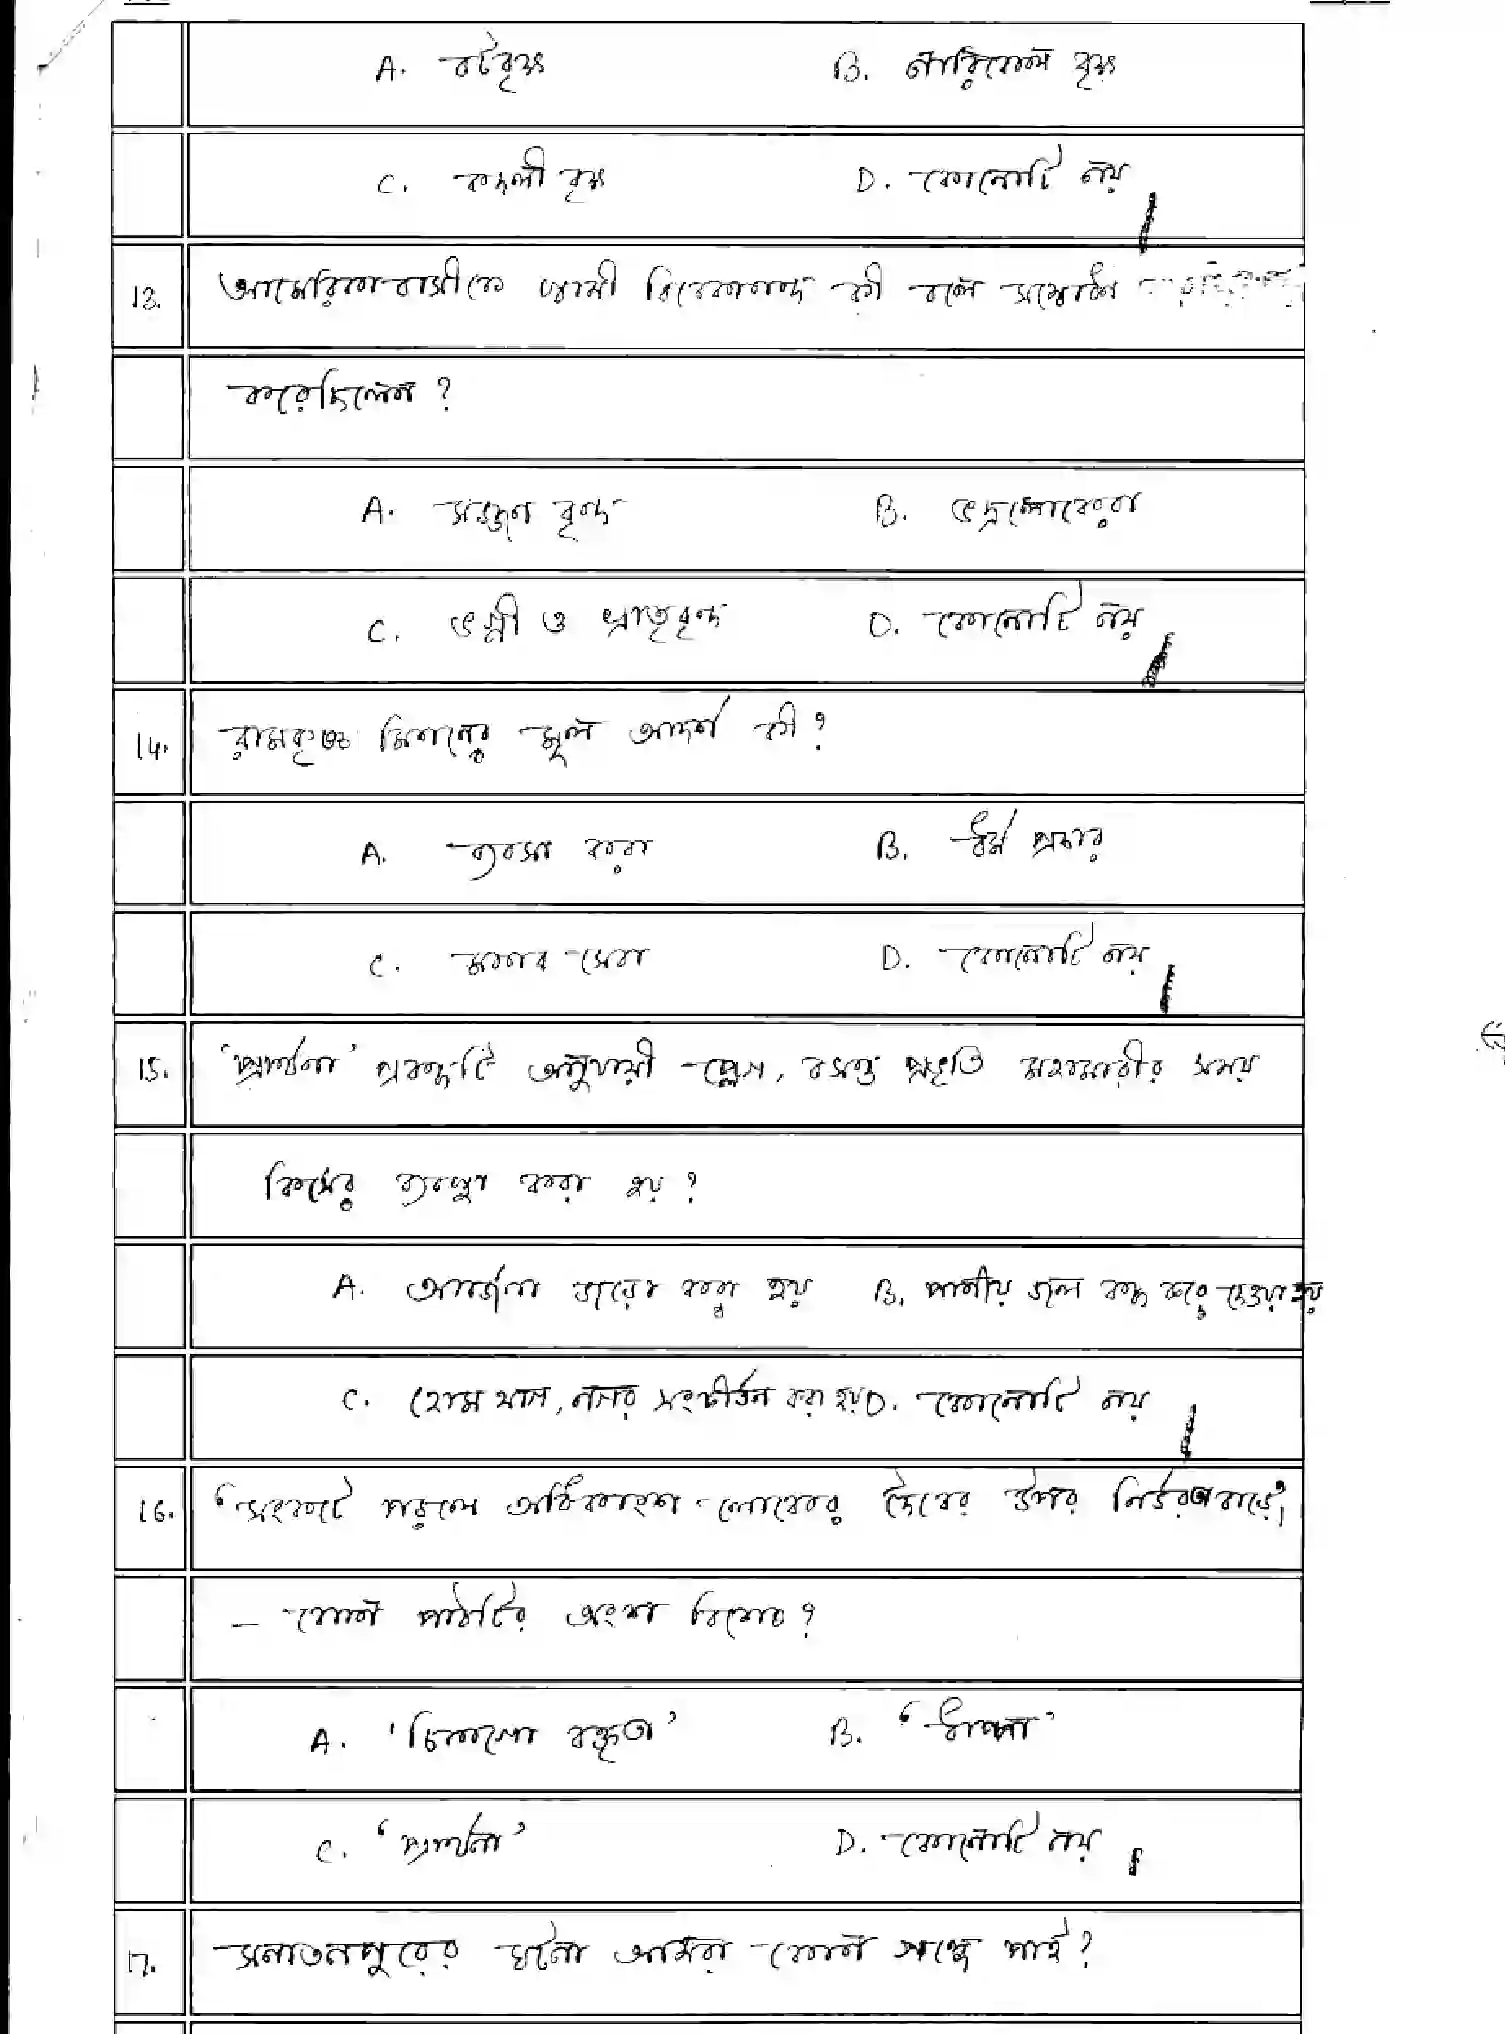 A. বটবৃক্ষ B. নারিকেল বৃক্ষ
C. কদলী বৃক্ষ D. কোনোটি নয়
13. আমেরিকাবাসীকে স্বামী বিবেকানন্দ কী বলে সম্বোধন
করেছিলেন ?
A. সজ্জন বৃন্দ B. ভদ্রলোকেরা
C. ভগ্নী ও ভ্রাতৃবৃন্দ D. কোনোটি নয়
14. রামকৃষ্ণ মিশনের মূল আদর্শ কী ?
A. ব্যবসা করা B. ধর্ম প্রচার
C. মানব সেবা D. কোনোটি নয়
15. 'প্রার্থনা' প্রবন্ধটি অনুযায়ী প্লেগ, বসন্ত প্রভৃতি মহামারীর সময়
কিসের ব্যবস্থা করা হয় ?
A. আবর্জনা জড়ো করা হয় B. পানীয় জল বন্ধ করে দেওয়া হয়
C. হোম যাগ, নগর সংকীর্তন করা হয় D. কোনোটি নয়
16. 'সংকটে পড়লে অধিকাংশ লোকের দৈবের উপর নির্ভরতা বাড়ে;'
– কোন পাঠটির অংশ বিশেষ ?
A. 'চিকাগো বক্তৃতা' B. 'ধাপ্পা'
C. 'প্রার্থনা' D. কোনোটি নয়
17. সনাতনপুরের ঘটনা আমরা কোন গল্পে পাই ?